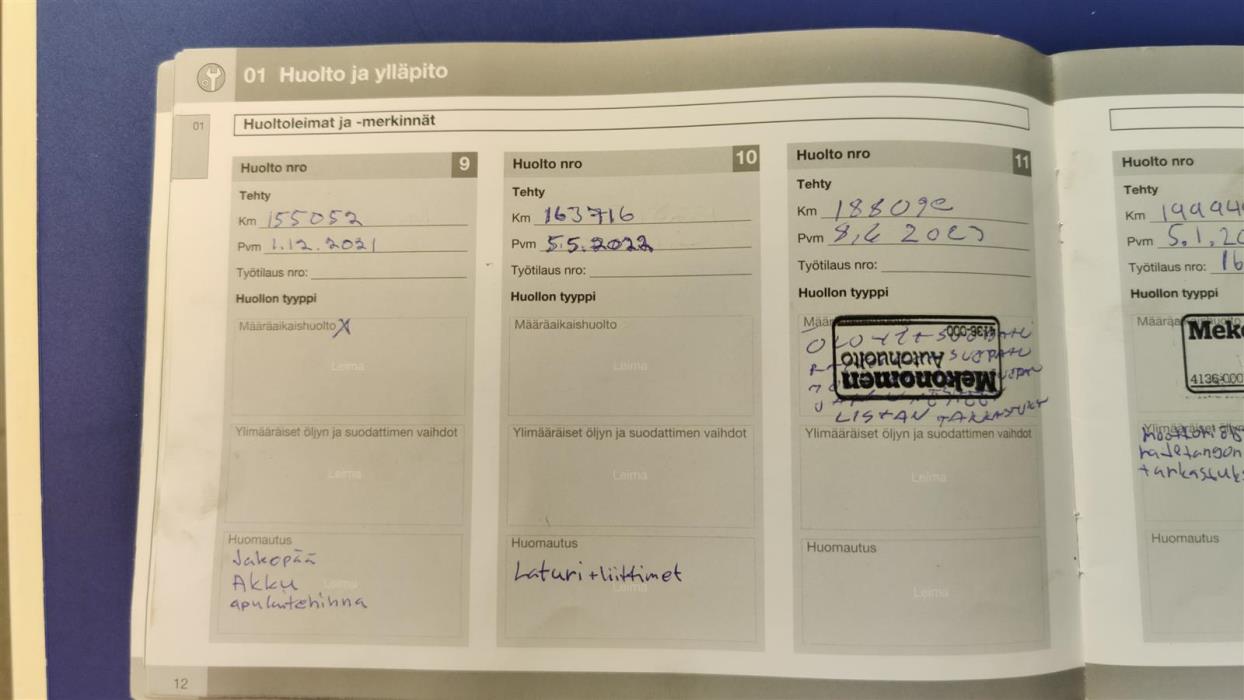 01 Huolto ja ylläpito
01
Huoltoleimat ja -merkinnät
Huolto nro 9
Tehty
Km 155052
Pvm 1.12.2021
Työtilaus nro:
Huollon tyyppi
Määräaikaishuolto X
Leima
Ylimääräiset öljyn ja suodattimen vaihdot
Leima
Huomautus
Jakopää
Akku
Leima
Huolto nro 10
Tehty
Km 163716
Pvm 5.5.2022
Työtilaus nro:
Huollon tyyppi
Määräaikaishuolto
Leima
Ylimääräiset öljyn ja suodattimen vaihdot
Leima
Huomautus
Laturi + liittimet
Leima
Huolto nro 11
Tehty
Km
Pvm
Työtilaus nro:
Huollon tyyppi
4136-000
Autohuolto
Mekonomen
LISTAN TARKASTUKS
Ylimääräiset öljyn ja suodattimen vaihdot
Leima
Huomautus
Leima
Huolto nro
Tehty
Km 19994
Pvm 5.1.20
Työtilaus nro: 16
Huollon tyyppi
Meko
4136-000
tarkastuks
Huomautus
12